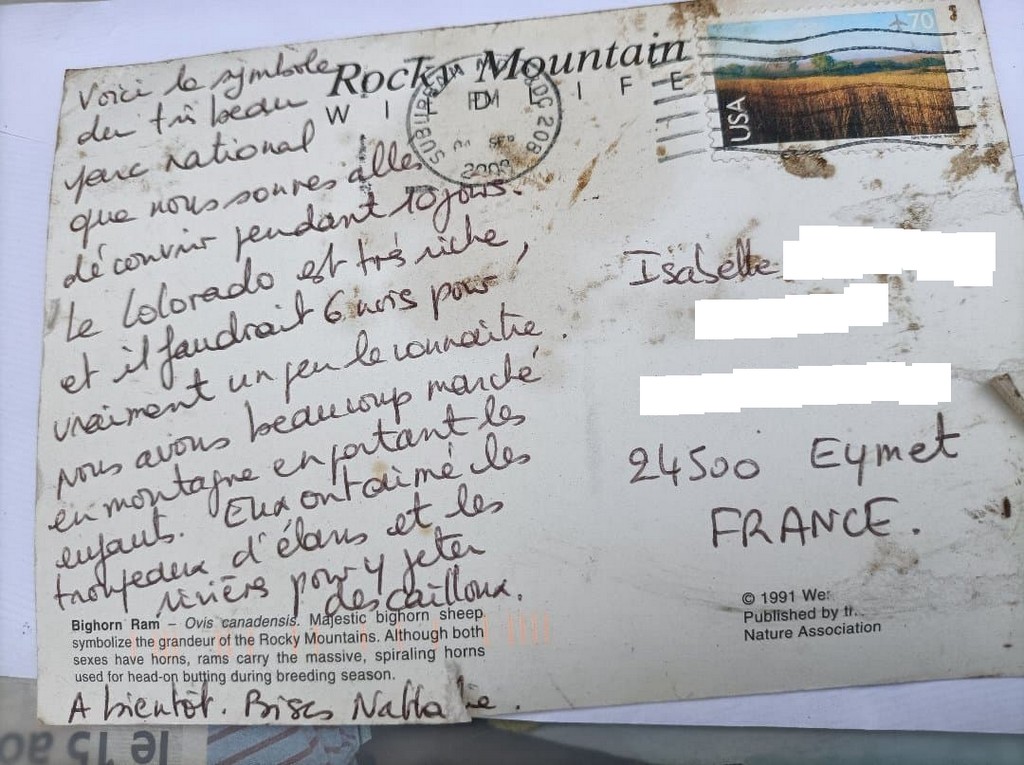 Voici le symbole
du très beau
parc national
que nous sommes allés
découvrir pendant 10 jours.
Le Colorado est très riche,
et il faudrait 6 mois pour
vraiment un peu le connaître.
Nous avons beaucoup marché
en montagne en portant les
enfants. Eux ont aimé les
troupeaux d'élans et les
rivières pour y jeter
des cailloux.
A bientôt. Bises Nathalie.
Rocky Mountain
WILDLIFE
SUBURBAN
208
PM
2009
USA
70
Isabelle
24500 Eymet
FRANCE.
Bighorn Ram – Ovis canadensis. Majestic bighorn sheep
symbolize the grandeur of the Rocky Mountains. Although both
sexes have horns, rams carry the massive, spiraling horns
used for head-on butting during breeding season.
© 1991
Published by
Nature Association
le 15